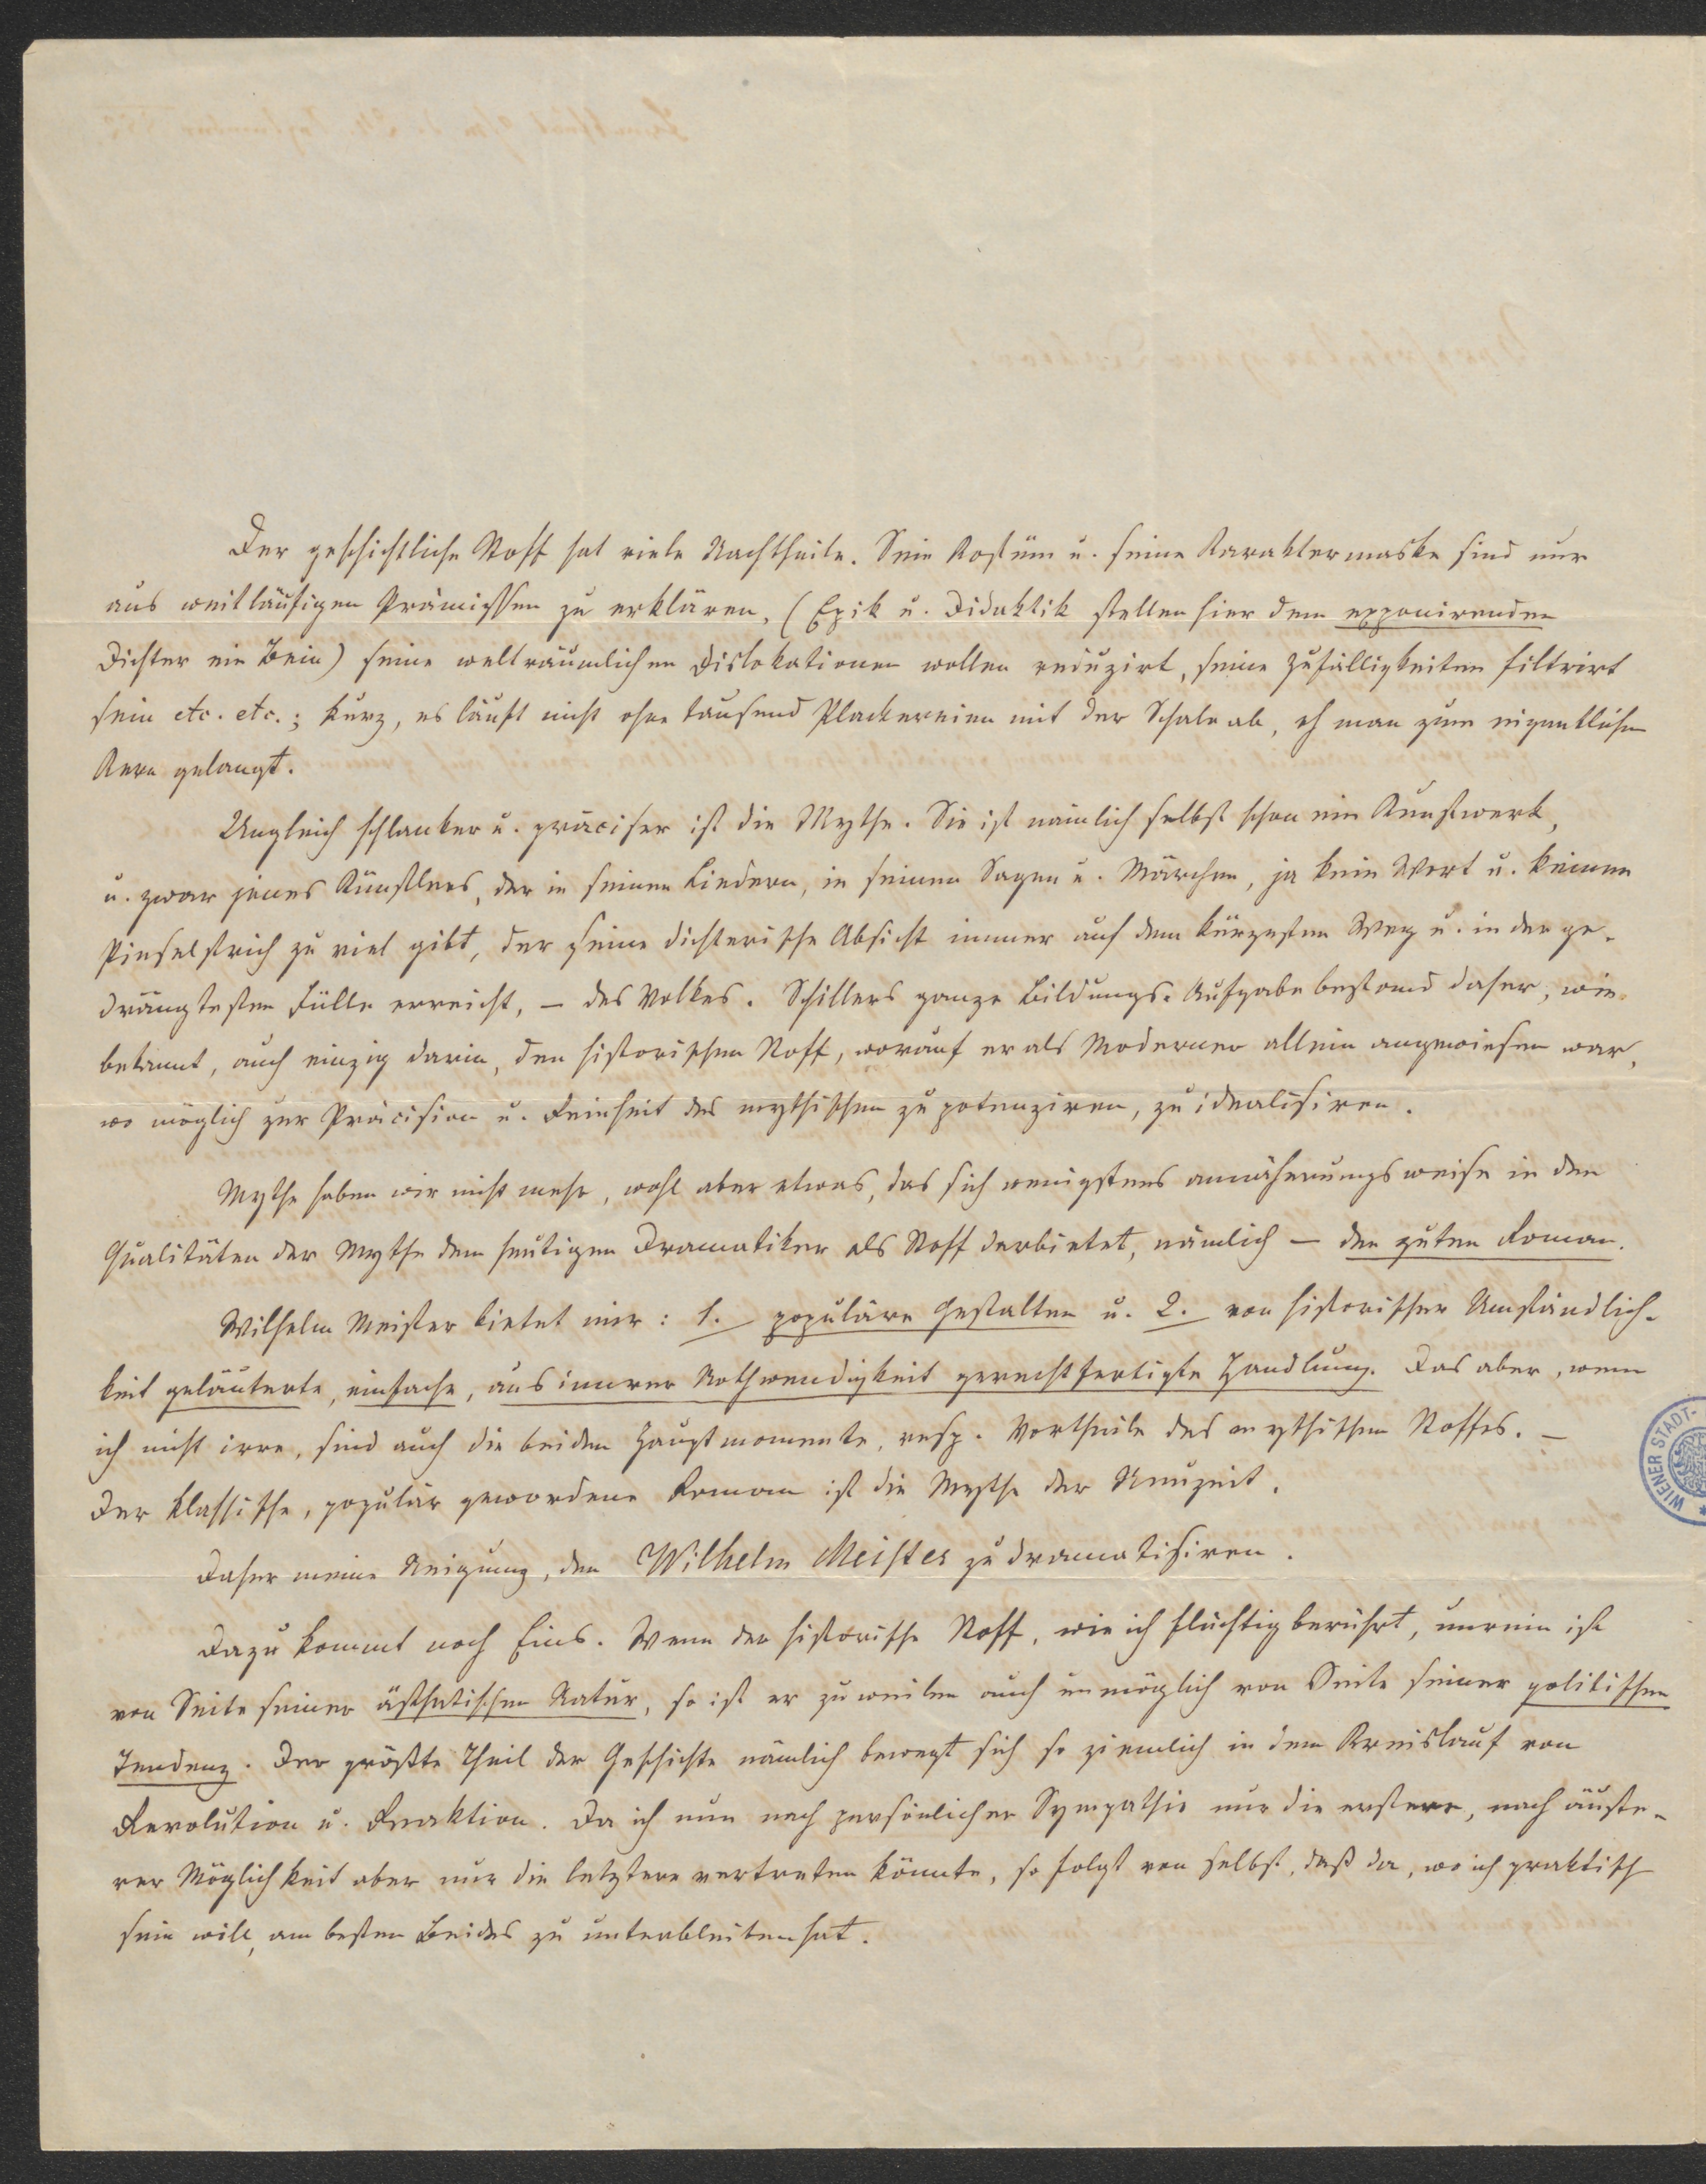 Der geschichtliche Stoff hat viele Nachtheile. Sein Kostüm u. seine Karaktermaske sind nur
aus weitläufigen Prämissen zu erklären, (Epik u. Didaktik stellen hier dem exponirenden
Dichter ein Bein) seine welträumlichen Dislokationen wollen reduzirt, seine Zufälligkeiten filtrirt
sein etc. etc.; kurz, es läuft nicht ohne tausend Plackereien mit der Schale ab, eh man zum eigentlichen
Kern gelangt.
Ungleich schlanker u. präciser ist die Mythe. Sie ist nämlich selbst schon ein Kunstwerk,
u. zwar jenes Künstlers, der in seinen Liedern, in seinen Sagen u. Märchen, ja kein Wort u. keinen
Pinselstrich zu viel gibt, der seine dichterische Absicht immer auf dem kürzesten Weg u. in der ge-
drängtesten Fülle erreicht, – des Volkes. Schillers ganze Bildungs-Aufgabe bestand daher, wie
bekannt, auch einzig darin, den historischen Stoff, worauf er als Moderner allein angewiesen war,
wo möglich zur Präcision u. Feinheit des mythischen zu potenziren, zu idealisiren.
Mythe haben wir nicht mehr, wohl aber etwas, das sich wenigstens annäherungsweise in den
Qualitäten der Mythe dem heutigen Dramatiker als Stoff darbietet, nämlich – den guten Roman.
Wilhelm Meister bietet mir: 1. populäre Gestalten u. 2. von historischer Umständlich-
keit geläuterte, einfache, aus innerer Nothwendigkeit gerechtfertigte Handlung. Das aber, wenn
ich nicht irre, sind auch die beiden Hauptmomente, resp. Vortheile des mythischen Stoffes. –
Der klassische, populär gewordene Roman ist die Mythe der Neuzeit.
Daher meine Neigung, den Wilhelm Meister zu dramatisiren.
Dazu kommt noch Eins. Wenn der historische Stoff, wie ich flüchtig berührt, unrein ist
von Seite seiner ästhetischen Natur, so ist er zuweilen auch unmöglich von Seite seiner politischen
Tendenz. Der größte Theil der Geschichte nämlich bewegt sich so ziemlich in dem Kreislauf von
Revolution u. Reaktion. Da ich nun nach persönlicher Sympathie nur die erstere, nach äuße-
rer Möglichkeit aber nur die letztere vertreten könnte, so folgt von selbst, daß da, wo ich praktisch
sein will, am besten Beides zu unterbleiben hat.
WIENER STADT-